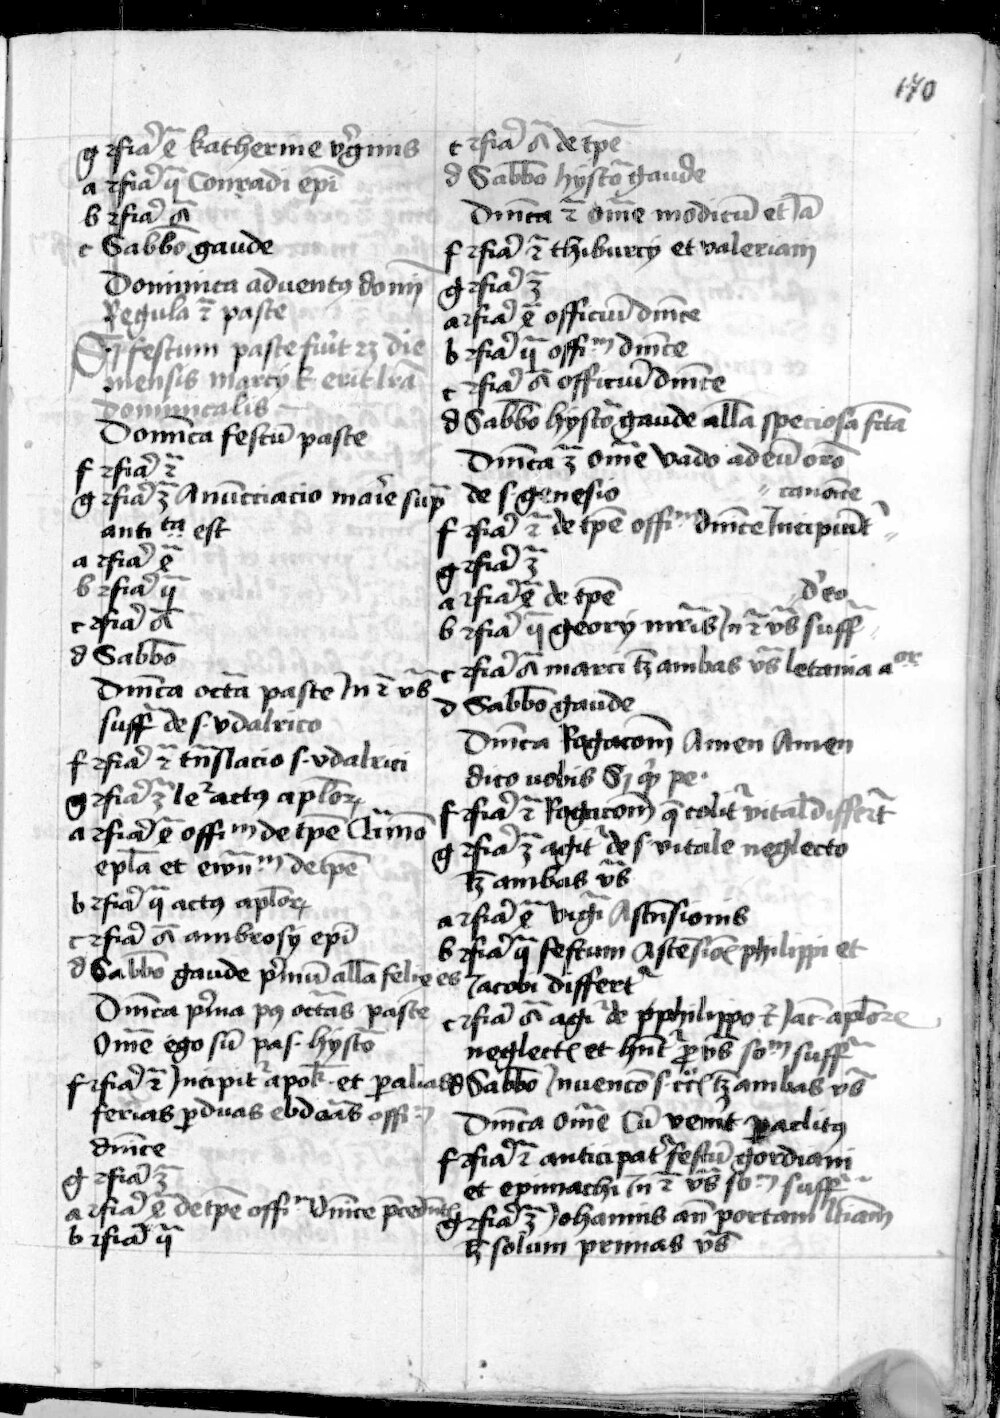 170
g rfia ē katherine v͛ginis
a rfia q̄ Conradi ep̄i
b rfia ā
c Sabbō gaude
Dominica adventꝰ domī
Regula 2̄ pasce
Si festum pasce fūit 22 die
mensis marcÿ t̄ erit lrā
dominicalis
Domīca festū pasce
f rfia 2̄
g rfia 3̄ Anūcciacio marie sup͛
anti ta est
a rfia ē
b rfia q̄
c rfia ā
d Sabbō
Dnīca octā pasce In 2̄ vs̄
suff͛ de s. vdalrico
f rfia 2̄ trn̄slacio s. vdalrici
g rfia 3̄ le͛ actꝰ aplor̄
a rfia ē offi m de tpē
epl̄a et ewn̄ m de tpē
b rfia q̄ actꝰ aplor̄
c rfia ā ambrosÿ ep̄i
d Sabbō gaude p͛mū all̄a felix es
Dnīca p͛ma pꝰ octās pasce
Om̄e ego sū pas. hÿstō
f rfia 2̄ Incipit͛ apok̄. et p̱ alias
ferias p̱ duas ebdoās offi m
dnīce
g rfia 3̄
a rfia ē de tpē offi m dnīce
b rfia q̄
c rfia ā de tpē
d Sabbō hÿstō gaude
Dnīca 2̄ om̄e modicū et Iā
f rfia 2̄ thiburcÿ et valeriani
g rfia 3̄
a rfia ē officiū dnīce
b rfia q̄ offi m dnīce
c rfia ā officiū dnīce
d Sabbō hÿstō gaude all̄a speciosa fc̄ta
Dnīca 3̄ om̄e vado ad eū orō
de s. genesio canonīce
f rfia 2̄ de tpē offi m dnīce Incipiūt͛
g rfia 3̄
a rfia ē de tpē
b rfia q̄ georÿ mr̄is In 2̄ vs̄ suff͛
c rfia ā marci tz̄ ambas vs̄ letania a or
d Sabbō gaude
Dnīca Rogacom̄ Amen Amen
dico vobis Si q͛ pe.
f rfia 2̄ Rogacom̄ q̄ colit͛ vital̄ differt͛
g rfia 3̄ agit͛ de s. vitale neglecto
tz̄ ambas vs̄
a rfia ē vigī Ascn̄sionis
b rfia q̄ festum Ascēsiōis philippi et
Iacobi differt͛
c rfia ā agi͛ de philippo 2̄ Iac. aplore
neglect̄ et hn̄t p̱ vs̄ so m suff͛
d Sabbō Invencō s. c̄c̄ tz̄ ambas vs̄
Dnīca Om̄e Cū ven͛it paclitꝰ
f rfia 2̄ anticipat͛ festū gordiani
et epimachi In 2̄ vs̄ so m suff͛
g rfia 3̄ Iohannis an̄ portam latiam̄
tz̄ solum primas vs̄